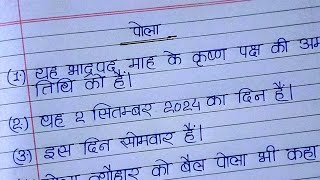 पोला
(1) यह भाद्रपद माह के कृष्ण पक्ष की
तिथि को हैं।
(2) यह 2 सितम्बर 2024 का दिन हैं।
(3) इस दिन सोमवार हैं।
त्यौहार को बैल पोला भी कहा